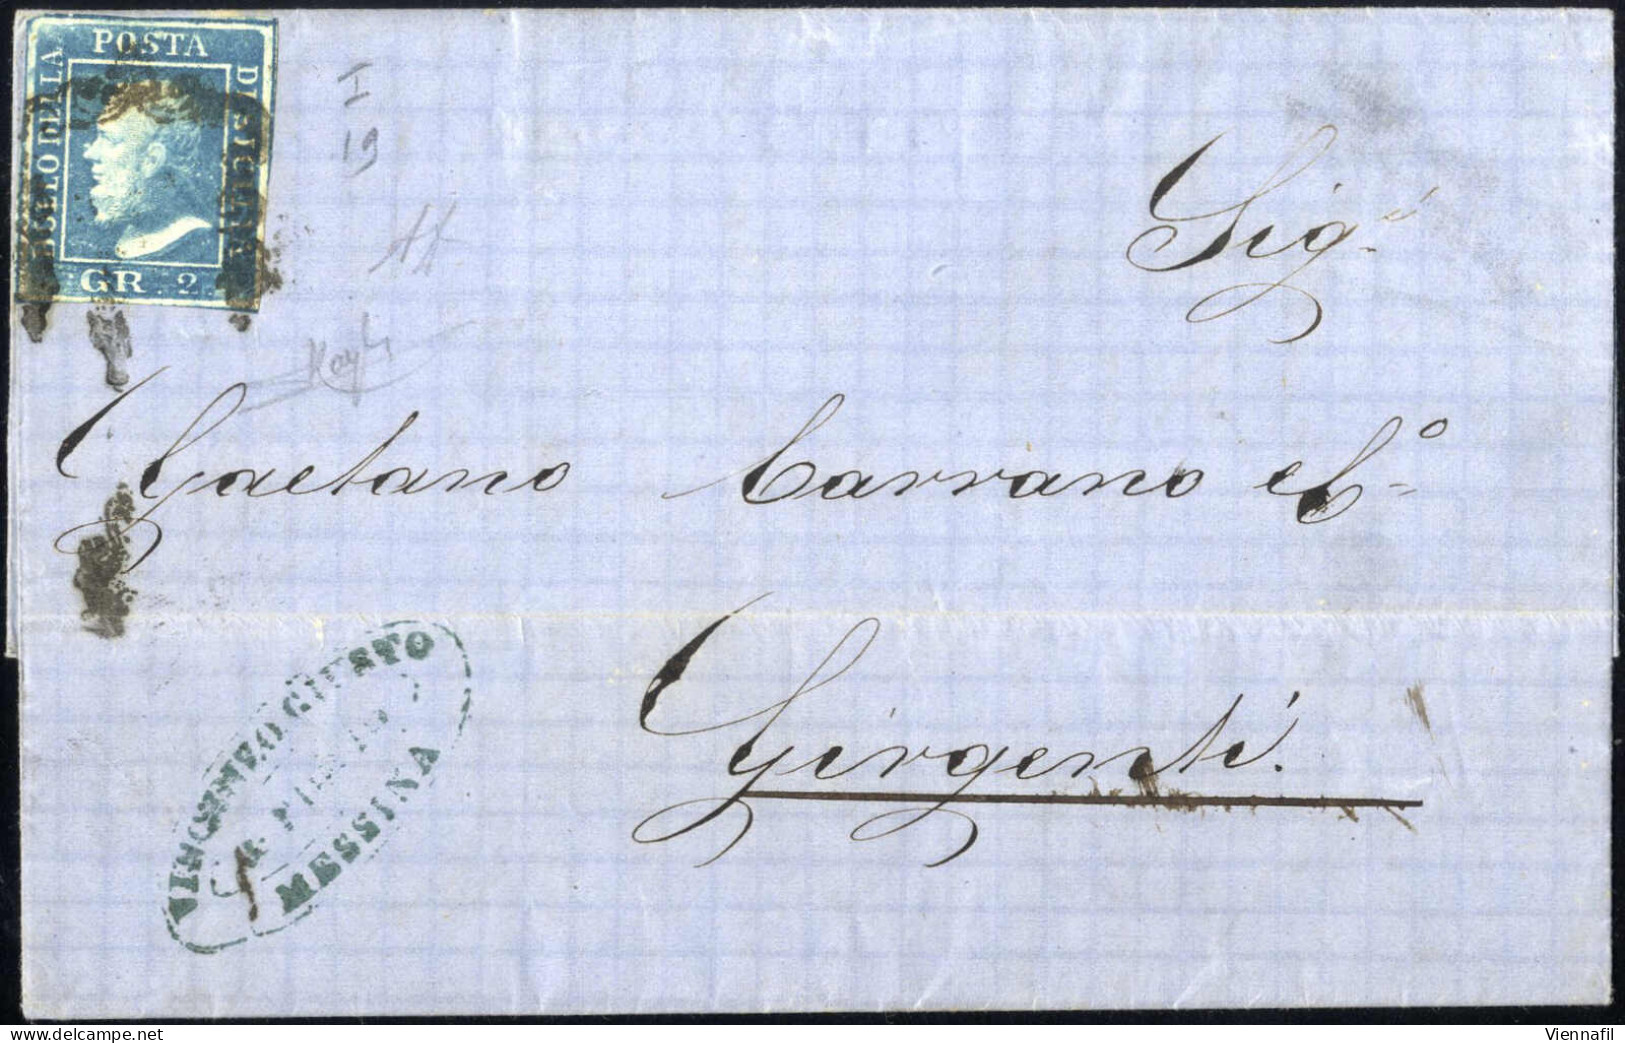 POSTA
BOLLO DELLA
DI SICILIA
GR. 2
I
19
Sigi
Gaetano Carrano e Co
Girgenti.
VINCENZO GIUSTO
MESSINA
Viennafil